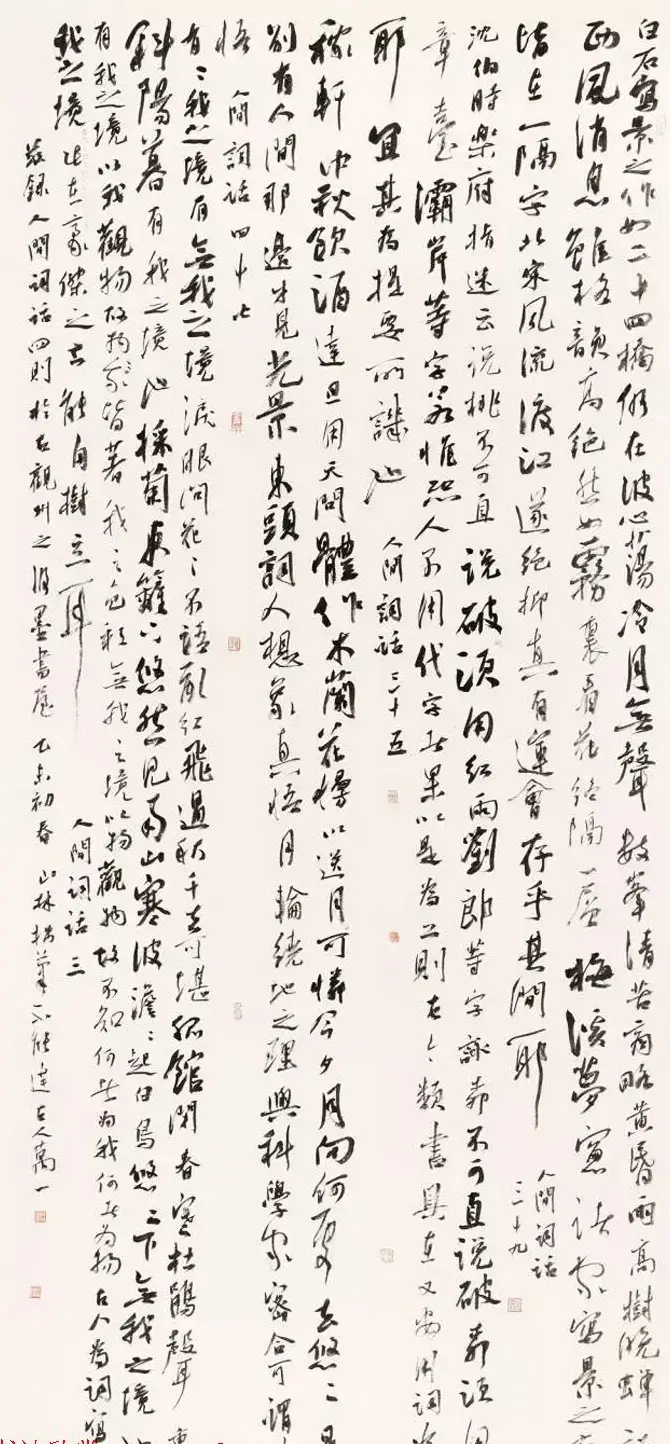 白石寫景之作如二十四橋仍在波心蕩冷月無聲數峯清苦商略黃昏雨高樹晚蟬說
西風消息雖格韻高絕然如霧裏看花終隔一層梅溪夢窗諸家寫景之
皆在一隔字北宋風流渡江遂絕抑真有運會存乎其間耶
人間詞話
三十九
沈伯時樂府指迷云說桃不可直說破須用紅雨劉郎等字詠柳不可直說破柳須用
章臺灞岸等字若惟恐人不用代字者果以是為工則古今類書具在又安用詞
耶宜其為提要所譏也
人間詞話三十五
稼軒中秋飲酒達旦用天問體作木蘭花慢以送月可憐今夕月向何處去悠悠是
別有人間那邊才見光景東頭詞人想象真悟月輪繞地之理與科學家密合可謂
悟
人間詞話四十七
有有我之境有無我之境淚眼問花花不語亂紅飛過秋千去可堪孤館閉春寒杜鵑聲
斜陽暮有我之境也採菊東籬下悠然見南山寒波澹澹起白鳥悠悠下無我之境
有我之境以我觀物故物我皆著我之色彩無我之境以物觀物故不知何者為我何者為物古人為詞寫
我之境此在豪傑之士能自樹立耳
人間詞話三
敬錄人間詞話四則於古觀州之 墨書屋乙未初春山林 筆不能達古人萬一